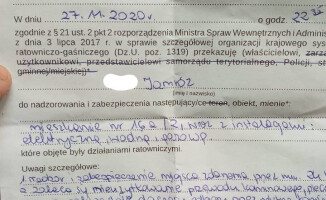 W dniu 27.11.2020r. o godz. 22
zgodnie z § 21 ust. 2 pkt 2 rozporządzenia Ministra Spraw Wewnętrznych i Admini
z dnia 3 lipca 2017 r. w sprawie szczegółowej organizacji krajowego sys
ratowniczo-gaśniczego (Dz.U. poz. 1319) przekazuję (właścicielowi, zarz
użytkownikowi, przedstawicielowi samorządu terytorialnego, Policji, s
gminnej/miejskiej)*
(imię i nazwisko)
do nadzorowania i zabezpieczenia następujący/ce teren, obiekt, mienie*:
mieszkanie nr wraz z instalacjami:
elektryczną, wodną i gazową.
które objęte były działaniami ratowniczymi.
Uwagi szczegółowe:
1. Nadzór i zabezpieczenie miejsca zdarzenia przez
przewodu kominowego,